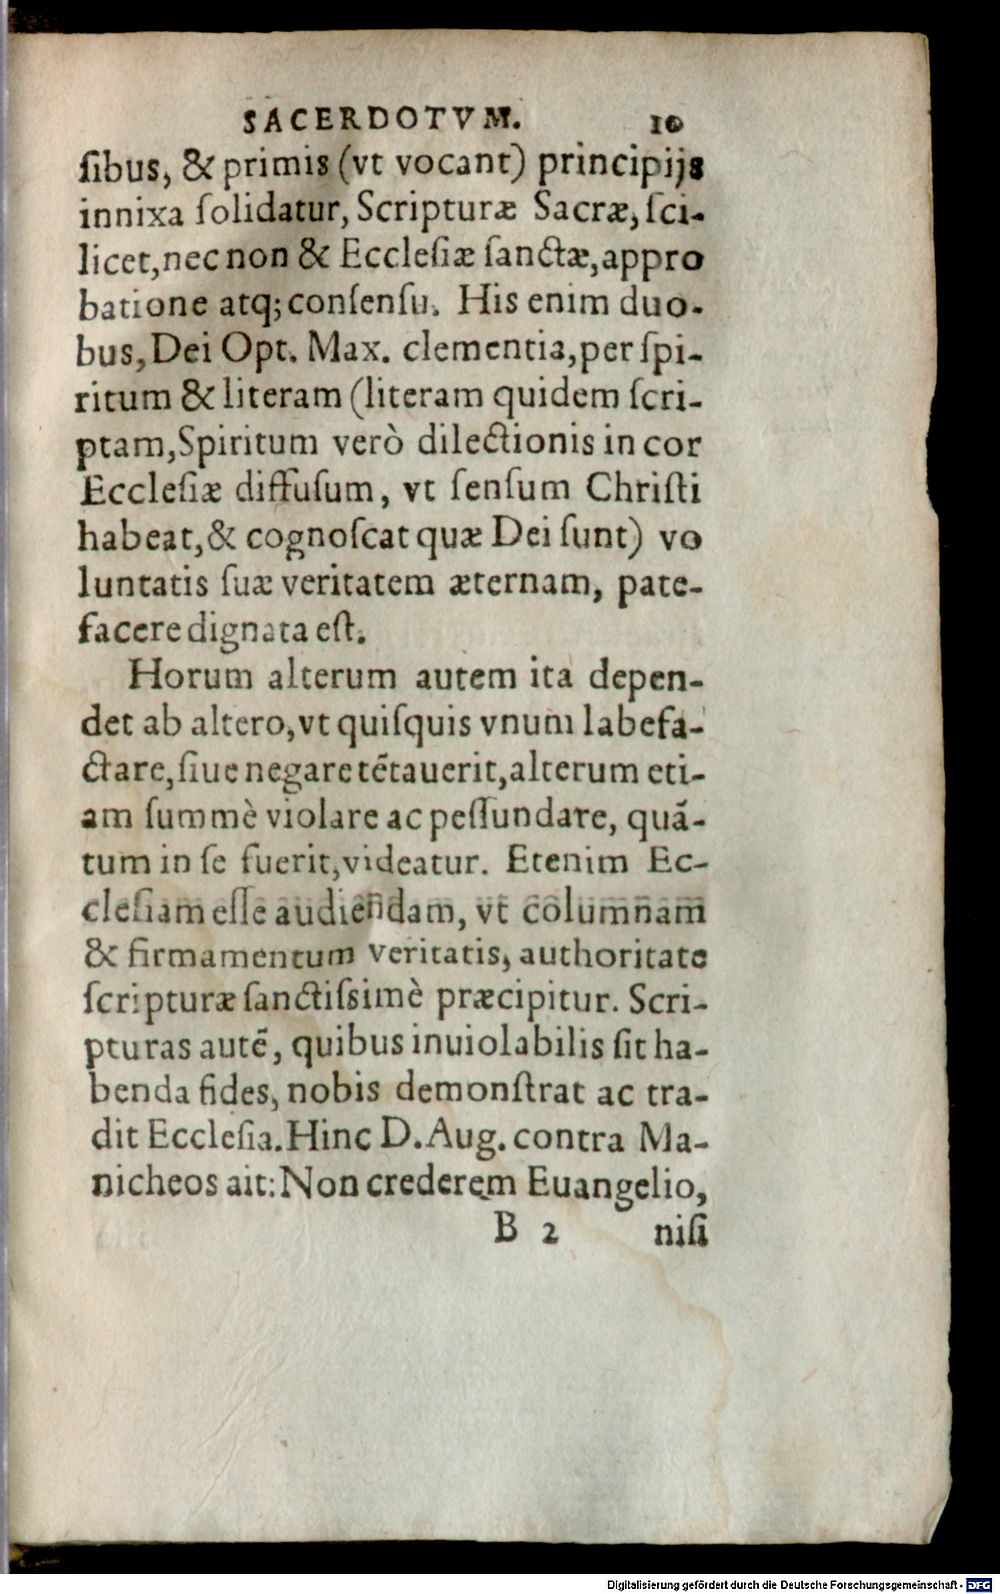 SACERDOTVM. 10
ſibus, & primis (vt vocant) principijs
innixa ſolidatur, Scripturæ Sacræ, ſci-
licet, nec non & Eccleſiæ ſanctæ, appro
batione atq; conſenſu. His enim duo-
bus, Dei Opt. Max. clementia, per ſpi-
ritum & literam (literam quidem ſcri-
ptam, Spiritum verò dilectionis in cor
Eccleſiæ diffuſum, vt ſenſum Chriſti
habeat, & cognoſcat quæ Dei ſunt) vo
luntatis ſuæ veritatem æternam, pate-
facere dignata eſt.
Horum alterum autem ita depen-
det ab altero, vt quiſquis vnum labefa-
ctare, ſiue negare tētauerit, alterum eti-
am ſummè violare ac peſſundare, quā-
tum in ſe fuerit, videatur. Etenim Ec-
cleſiam eſſe audiendam, vt columnam
& firmamentum veritatis, authoritate
ſcripturæ ſanctiſsimè præcipitur. Scri-
pturas autē, quibus inuiolabilis ſit ha-
benda fides, nobis demonſtrat ac tra-
dit Eccleſia. Hinc D. Aug. contra Ma-
nicheos ait: Non crederem Euangelio,
B 2 niſi
Digitalisierung gefördert durch die Deutsche Forschungsgemeinschaft - DFG